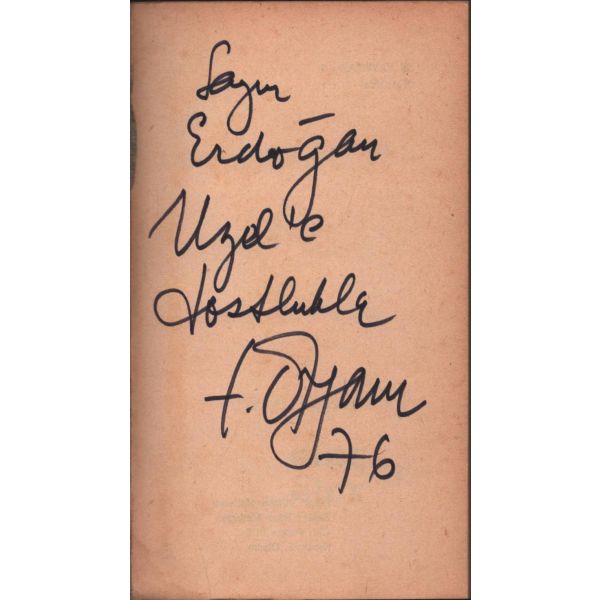 Sayın
Erdoğan
Uzel'e
dostlukla
F. Otyam
76